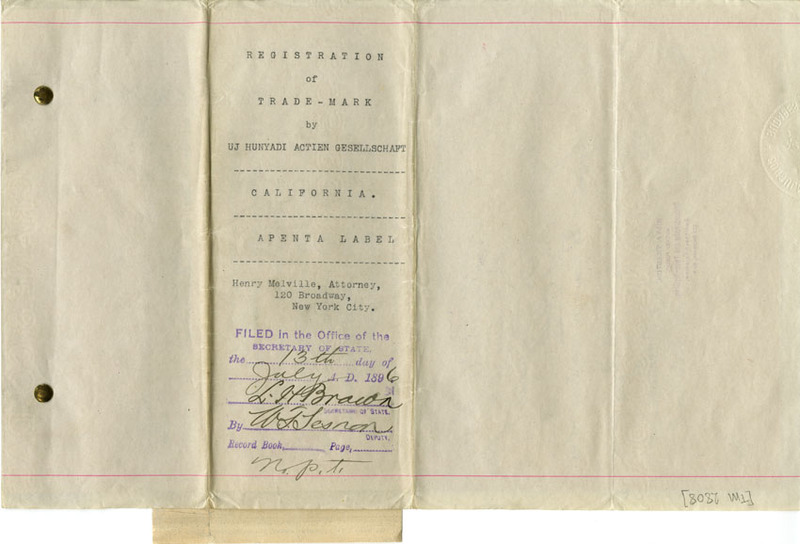 REGISTRATION
of
TRADE-MARK
by
UJ HUNYADI ACTIEN GESELLSCHAFT
CALIFORNIA.
APENTA LABEL
Henry Melville, Attorney,
120 Broadway,
New York City.
FILED in the Office of the
SECRETARY OF STATE,
the 13th day of
July A. D. 1896
L. H. Brown
SECRETARY OF STATE.
By W. T. Sesnon
DEPUTY.
Record Book, Page,
N. P. T.
[TM 2808]